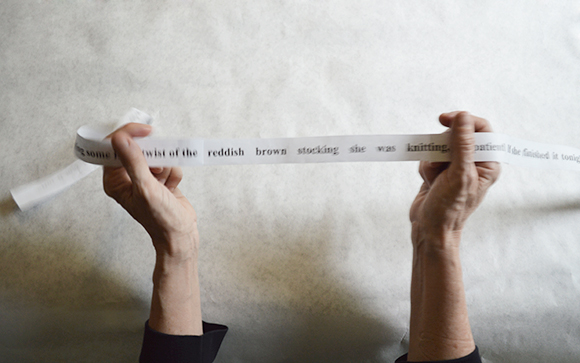 some twist of the reddish brown stocking she was knitting, she finished it